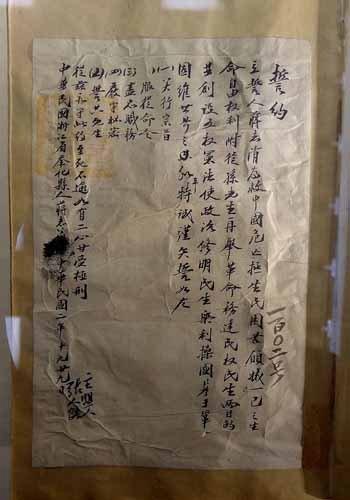 一百〇二号
誓約
立誓人蔣志清為救中國危亡拯生民困苦願犧牲一己之生
命自由權利附從孫先生再舉革命務達民權民生兩目的
並創設五權憲法使政治修明民生樂利措國基于鞏
固維世界之和平特誠謹矢誓如左
(一)實行宗旨
服從命令
(三)盡忠職務
(四)嚴守秘密
誓共生死
從茲永守此約至死不渝如有二心甘受極刑
中華民國浙江省奉化縣人蔣志
中華民國二年十月廿九日
主盟人